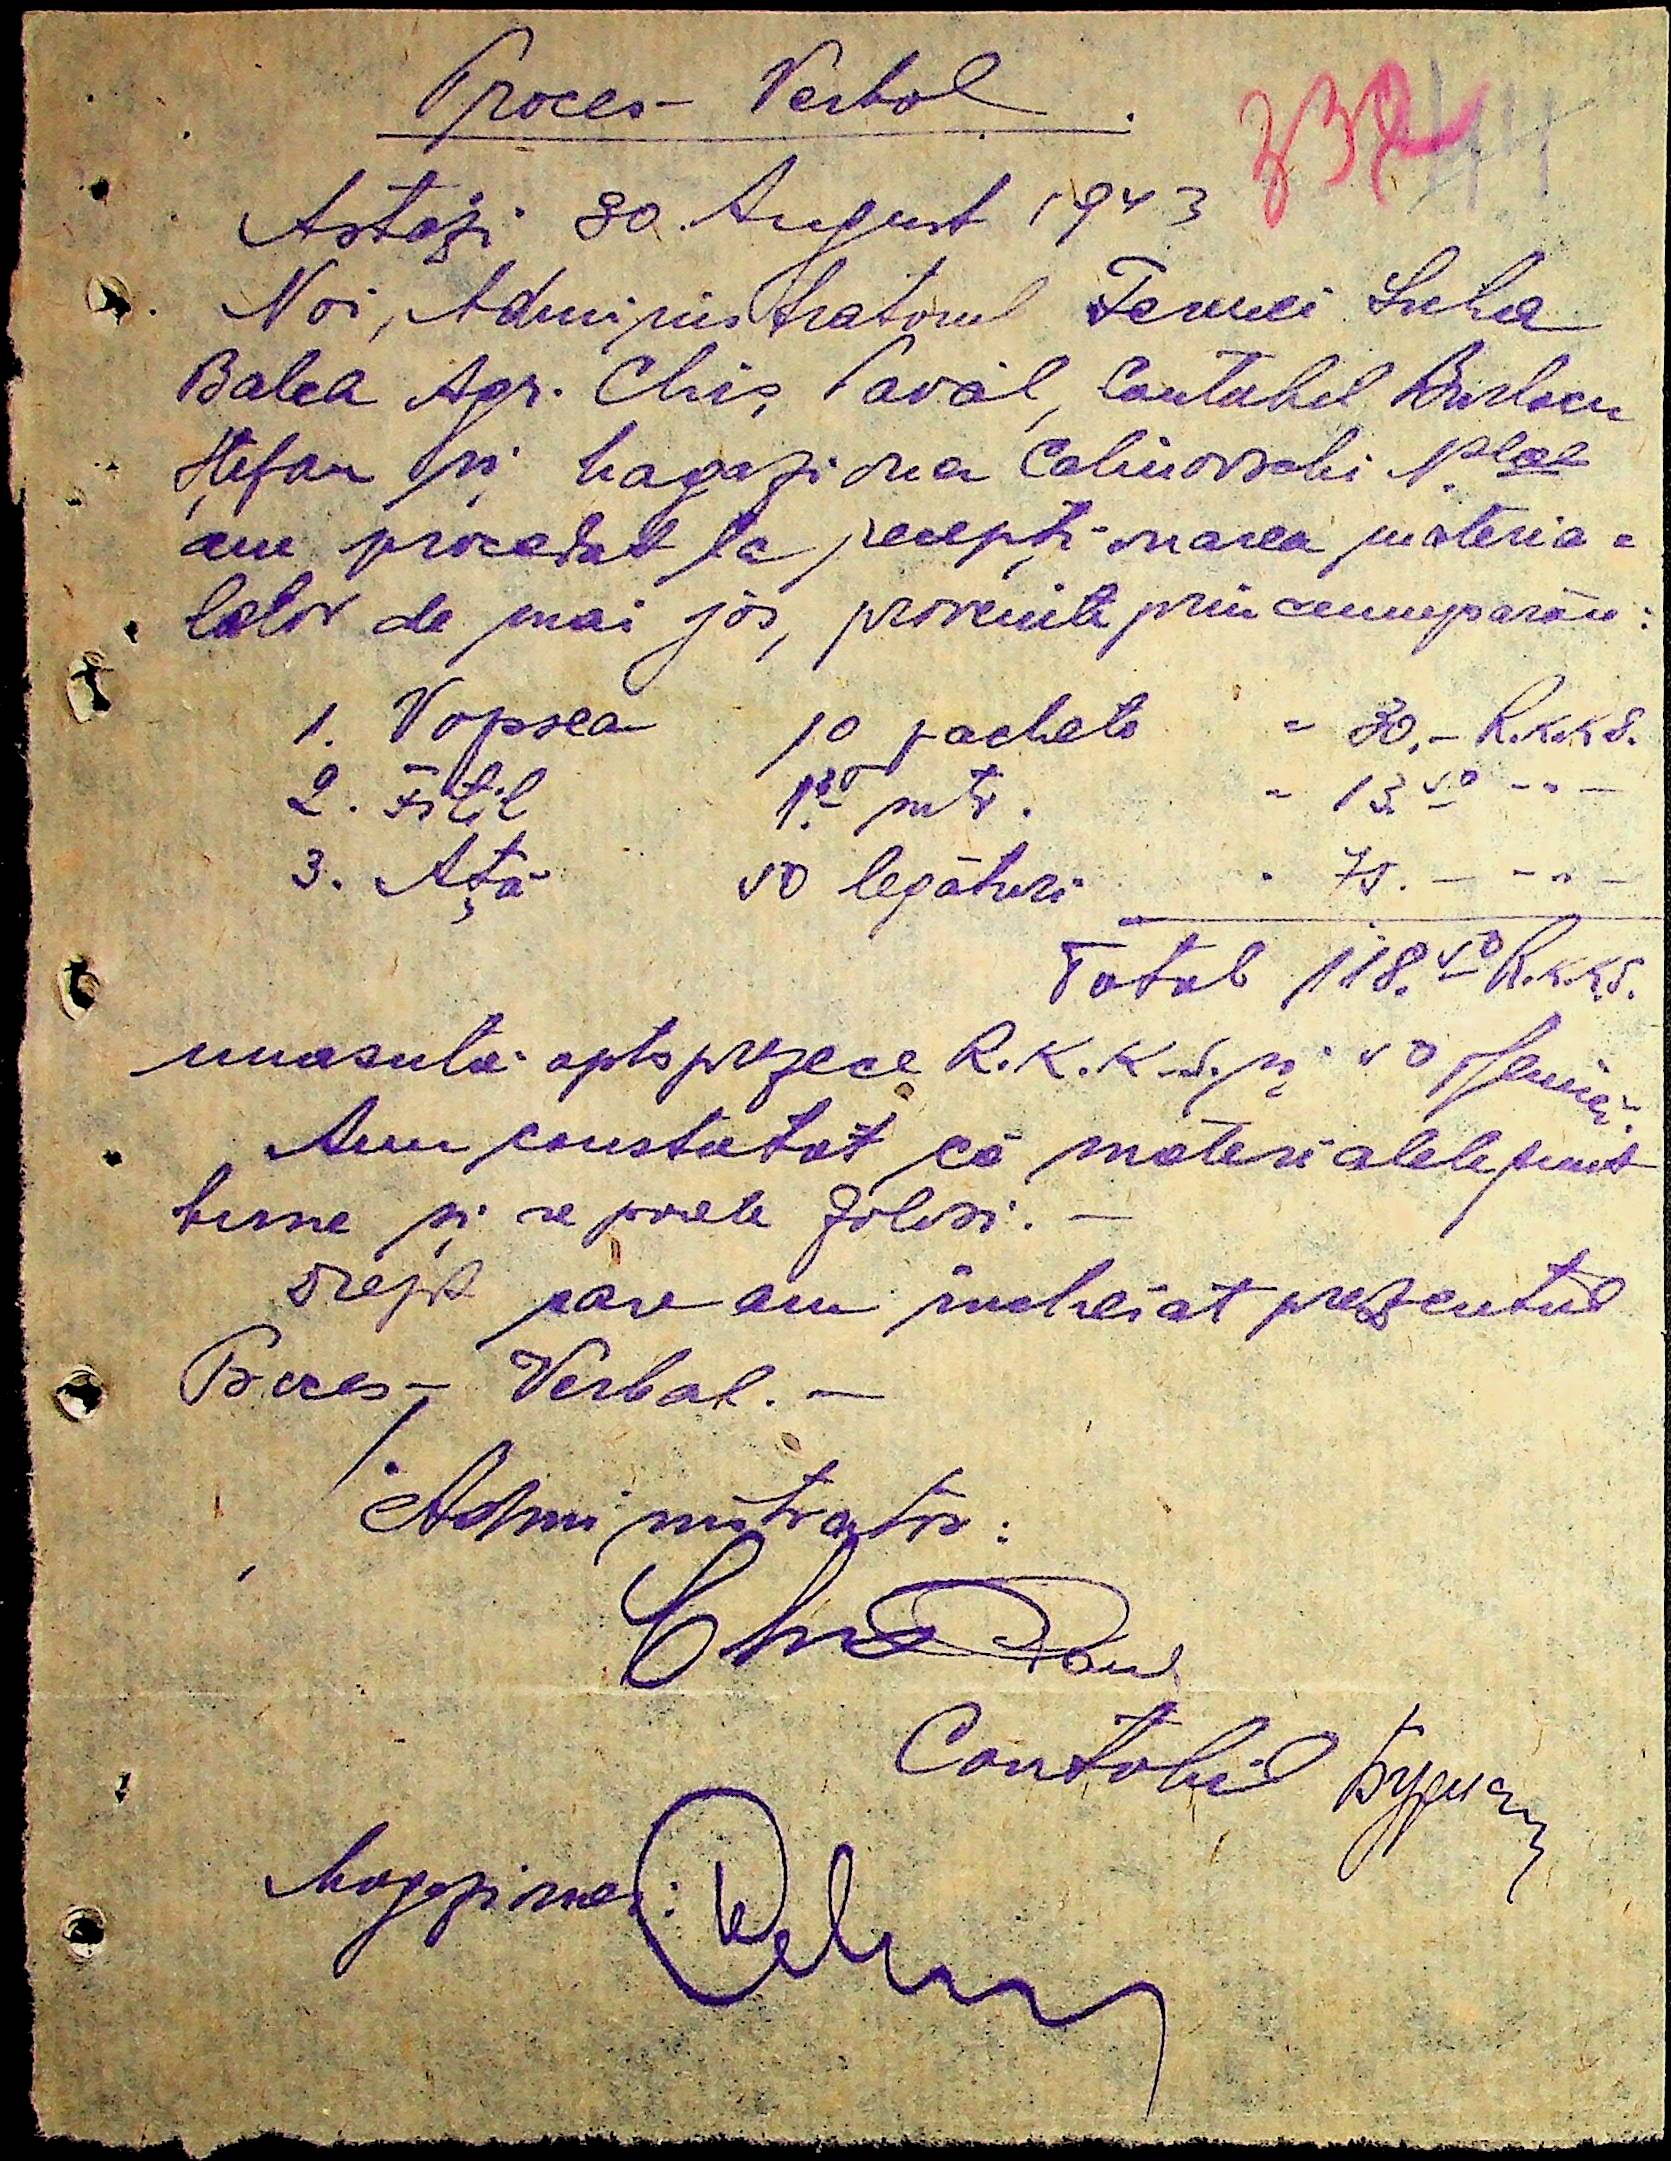 Proces-Verbal.
332 44
Astăzi 30. August 1943
Noi, Administratorul Fermei Suha
Balca Agr. Chiș, Pavăl, Contabil Burlacu
Ștefan și Magaziona Calinovschi
am procedat la recepționarea materia=
lelor de mai jos, provenite prin cumpărăre:
1. Vopsea 10 pachete = 30.- R.K.K.S.
2. Fitil mtr. - 13.50 -"-
3. Ață 50 legături . 75.- -"-
Total 118.50 R.K.K.S.
unasută optsprezece R.K.K.S. și 50 pfenici.
Am constatat că materialele sunt
bune și se poate folosi.-
Drept care am încheiat prezentul
Proces-Verbal.-
Administrator:
Contabil
Magazioner: